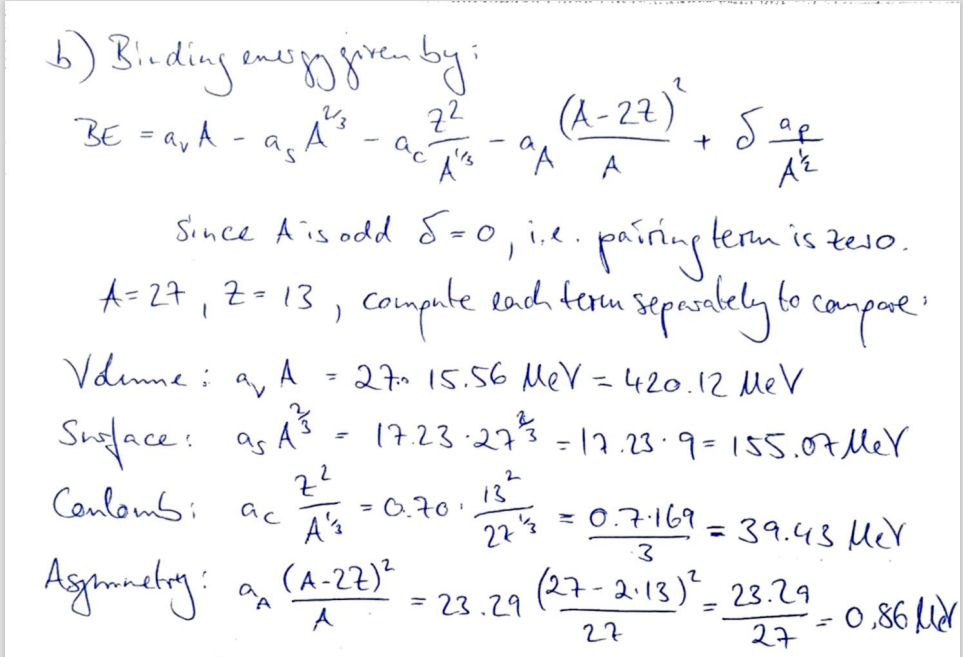 b) Binding energy given by:
BE = a_v A - a_s A^{2/3} - a_c Z²/A^{1/3} - a_A (A-2Z)²/A + δ a_p/A^{1/2}
Since A is odd δ=0, i.e. pairing term is zero.
A=27, Z=13, compute each term separately to compare:
Volume: a_v A = 27· 15.56 MeV = 420.12 MeV
Surface: a_s A^{2/3} = 17.23·27^{2/3} = 17.23·9 = 155.07 MeV
Coulomb: a_c Z²/A^{1/3} = 0.70· 13²/27^{1/3} = 0.7·169/3 = 39.43 MeV
Asymmetry: a_A (A-2Z)²/A = 23.29 (27-2·13)²/27 = 23.29/27 = 0,86 MeV